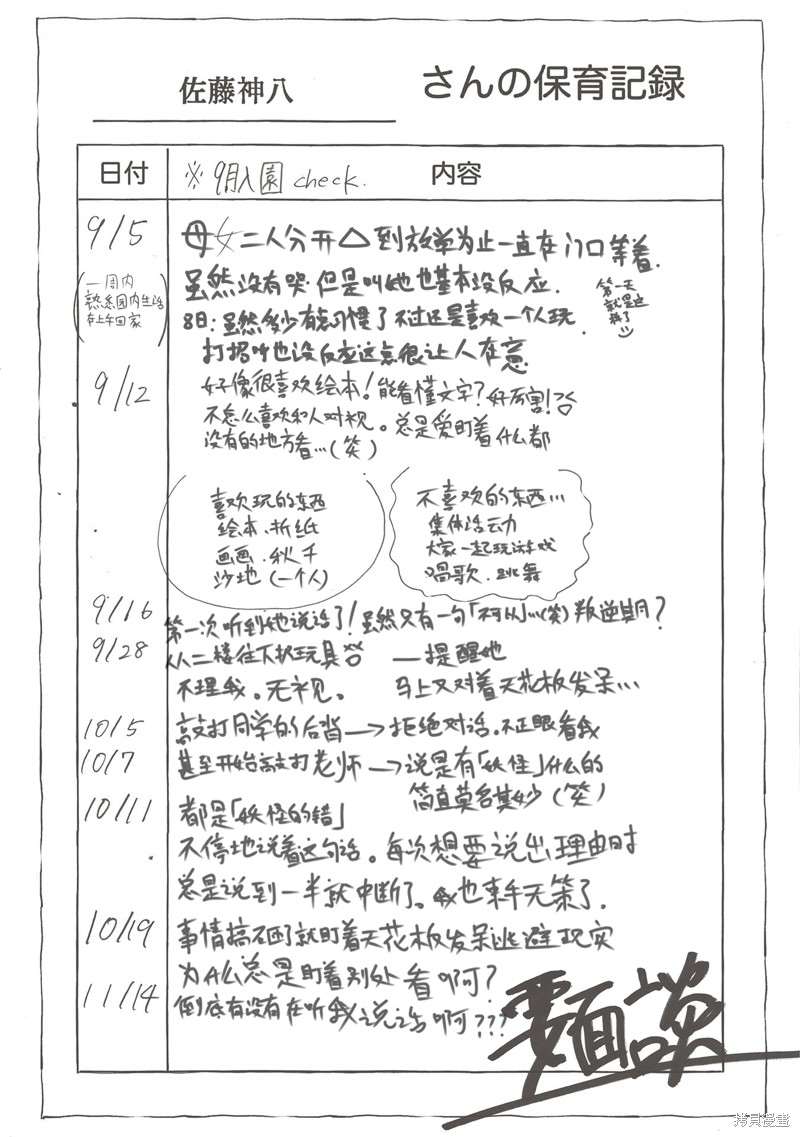 佐藤神八 さんの保育記録
日付 ※9月入園 check. 内容
9/5 母女二人分开△到放学为止一直在门口等着.
虽然没有哭.但是叫她也基本没反应.
第一天
就是这
样了
(一周内
熟悉园内生活
在上午回家)
8日:虽然稍有点习惯了 不过还是喜欢一个人玩
打招呼也没反应这点很让人在意
9/12 好像很喜欢绘本!能看懂文字?好厉害!
不怎么喜欢和人对视。总是爱盯着什么都
没有的地方看…(笑)
喜欢玩的东西
绘本、折纸
画画.秋千
沙地(一个人)
不喜欢的东西…
集体活动
大家一起玩游戏
唱歌.跳舞
9/16 第一次听到她说话了!虽然只有一句「不可以」…(笑)叛逆期?
9/28 从二楼往下扒玩具 —提醒她
不理我。无视。 马上又对着天花板发呆…
10/5 敲打同学的后背→拒绝对话.不正眼看我
10/7 甚至开始敲打老师→说是有「妖怪」什么的
简直莫名其妙(笑)
10/11 都是「妖怪的错」
不停地说着这句话。每次想要说出理由时
总是说到一半就中断了。我也束手无策了.
10/19 事情搞砸了就盯着天花板发呆逃避现实
为什么总是盯着别处看啊?
11/14 倒底有没有在听我说话啊???
要面談
拷貝漫畫